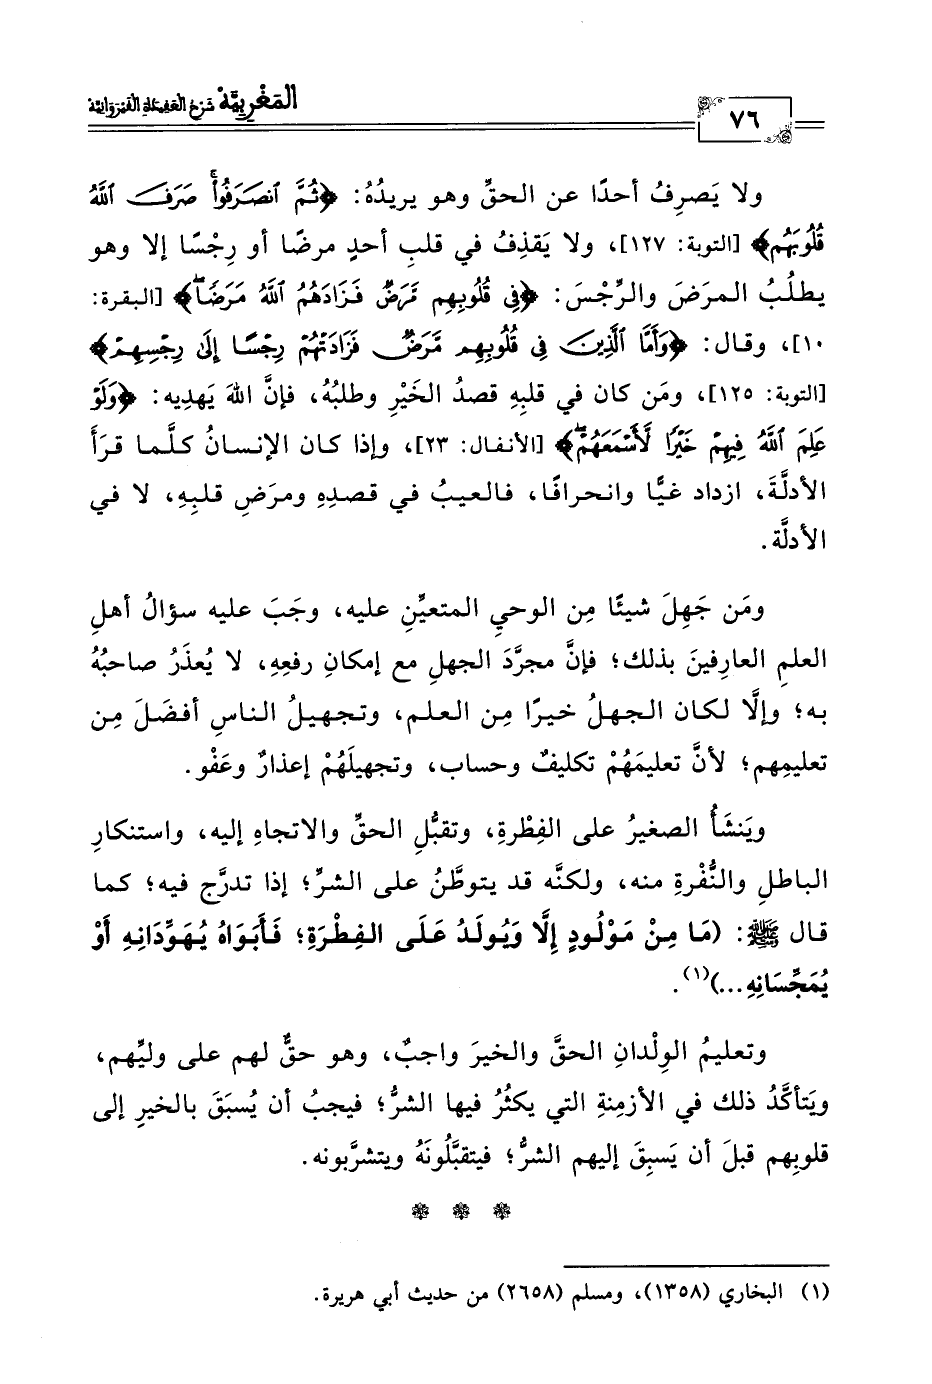 المَغْرِبِيَّة شَرْحُ العَقِيدَةِ القَيْرَوَانِيَّة
٧٦
ولا يَصرِفُ أحدًا عن الحقِّ وهو يريدُهُ: ﴿ثُمَّ ٱنصَرَفُواْۚ صَرَفَ ٱللَّهُ
قُلُوبَهُم﴾ [التوبة: ١٢٧]، ولا يَقذِفُ في قلبِ أحدٍ مرضًا أو رِجْسًا إلا وهو
يطلُبُ المرَضَ والرِّجْسَ: ﴿فِي قُلُوبِهِم مَّرَضٌ فَزَادَهُمُ ٱللَّهُ مَرَضٗاۖ﴾ [البقرة:
١٠]، وقال: ﴿وَأَمَّا ٱلَّذِينَ فِي قُلُوبِهِم مَّرَضٌ فَزَادَتْهُمْ رِجْسًا إِلَىٰ رِجْسِهِمْ﴾
[التوبة: ١٢٥]، ومَن كان في قلبِهِ قصدُ الخَيْرِ وطلبُهُ، فإنَّ اللهَ يَهدِيه: ﴿وَلَوْ
عَلِمَ ٱللَّهُ فِيهِمْ خَيْرًا لَّأَسْمَعَهُمْۖ﴾ [الأنفال: ٢٣]، وإذا كان الإنسانُ كلَّما قرَأَ
الأدلَّةَ، ازداد غيًّا وانحرافًا، فالعيبُ في قصدِهِ ومرَضِ قلبِهِ، لا في
الأدلَّة.
ومَن جَهِلَ شيئًا مِن الوحيِ المتعيِّنِ عليه، وجَبَ عليه سؤالُ أهلِ
العلمِ العارِفينَ بذلك؛ فإنَّ مجرَّدَ الجهلِ مع إمكانِ رفعِهِ، لا يُعذَرُ صاحبُهُ
به؛ وإلَّا لكان الجهلُ خيرًا مِن العلم، وتجهيلُ الناسِ أفضَلَ مِن
تعليمِهم؛ لأنَّ تعليمَهُمْ تكليفٌ وحساب، وتجهيلَهُمْ إعذارٌ وعَفْو.
ويَنشَأُ الصغيرُ على الفِطْرةِ، وتقبُّلِ الحقِّ والاتجاهِ إليه، واستنكارِ
الباطلِ والنُّفْرةِ منه، ولكنَّه قد يتوطَّنُ على الشرِّ؛ إذا تدرَّج فيه؛ كما
قال ﷺ: (مَا مِنْ مَوْلُودٍ إِلَّا وَيُولَدُ عَلَى الفِطْرَةِ؛ فَأَبَوَاهُ يُهَوِّدَانِهِ أَوْ
يُمَجِّسَانِهِ...)(١).
وتعليمُ الوِلْدانِ الحقَّ والخيرَ واجبٌ، وهو حقٌّ لهم على وليِّهم،
ويَتأكَّدُ ذلك في الأزمِنةِ التي يكثُرُ فيها الشرُّ؛ فيجبُ أن يُسبَقَ بالخيرِ إلى
قلوبِهم قبلَ أن يَسبِقَ إليهم الشرُّ؛ فيتقبَّلُونَهُ ويتشرَّبونه.
(١) البخاري (١٣٥٨)، ومسلم (٢٦٥٨) من حديث أبي هريرة.